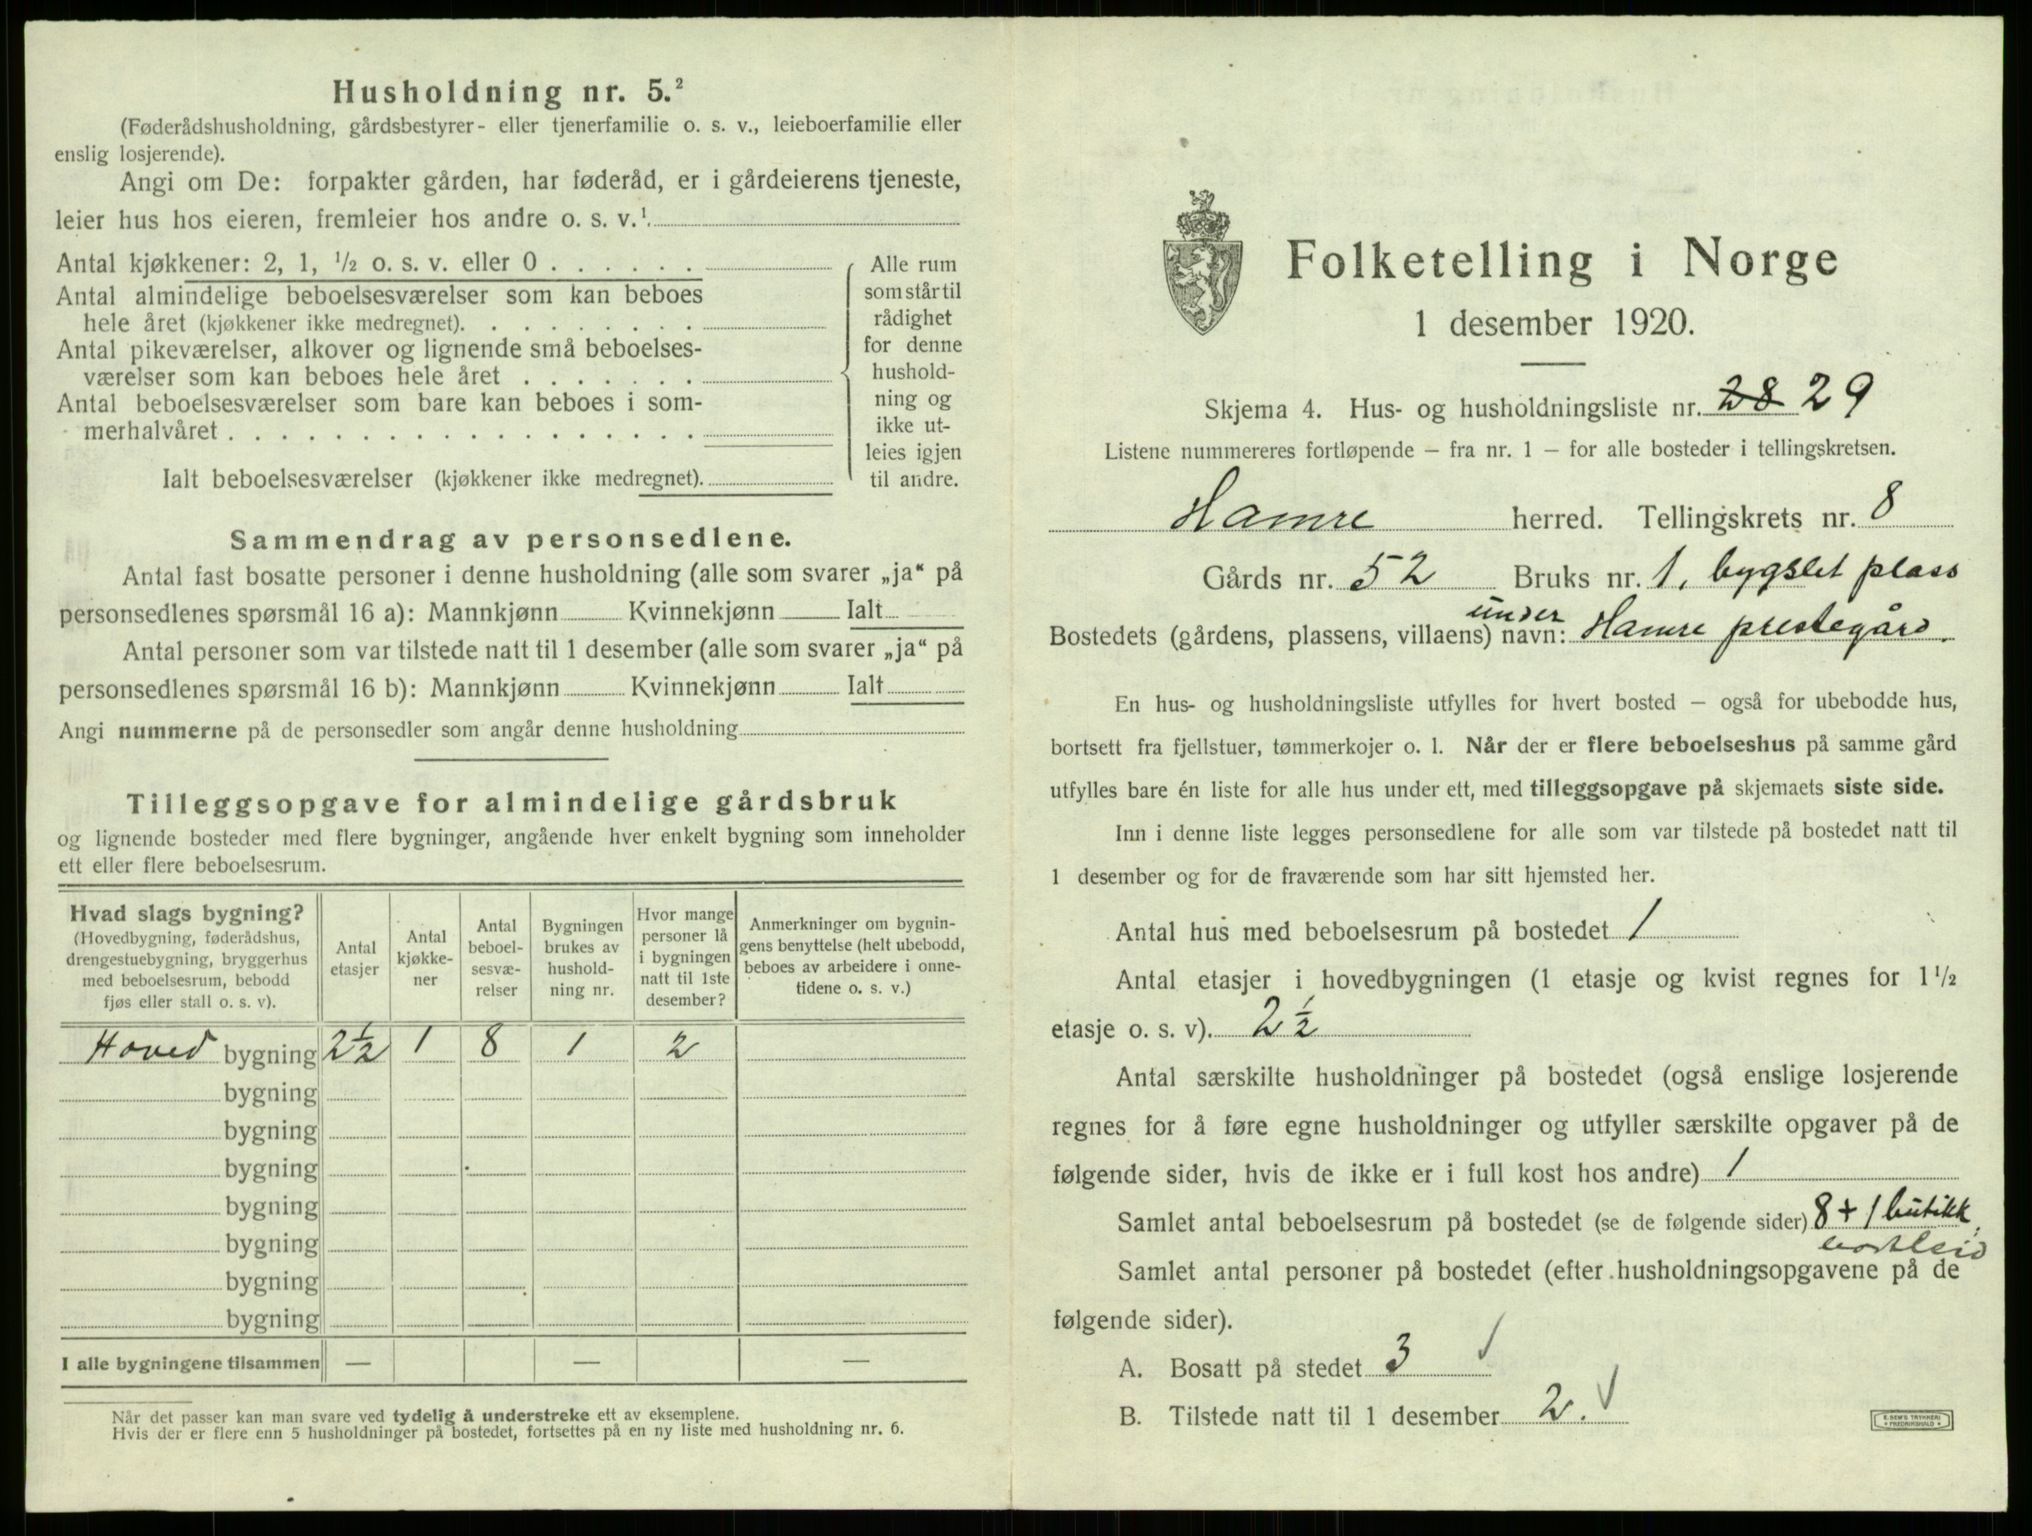 Husholdning nr. 5.²
(Føderådshusholdning, gårdsbestyrer- eller tjenerfamilie o. s. v., leieboerfamilie eller
enslig losjerende).
Angi om De: forpakter gården, har føderåd, er i gårdeierens tjeneste,
leier hus hos eieren, fremleier hos andre o. s. v.¹
Antal kjøkkener: 2, 1, ½ o. s. v. eller 0
Antal almindelige beboelsesværelser som kan beboes
hele året (kjøkkener ikke medregnet).
Antal pikeværelser, alkover og lignende små beboelses-
værelser som kan beboes hele året
Antal beboelsesværelser som bare kan beboes i som-
merhalvåret
Ialt beboelsesværelser (kjøkkener ikke medregnet).
Alle rum
som står til
rådighet
for denne
hushold-
ning og
ikke ut-
leies igjen
til andre.
Sammendrag av personsedlene.
Antal fast bosatte personer i denne husholdning (alle som svarer „ja“ på
personsedlenes spørsmål 16 a): Mannkjønn Kvinnekjønn Ialt
Antal personer som var tilstede natt til 1 desember (alle som svarer „ja“ på
personsedlenes spørsmål 16 b): Mannkjønn Kvinnekjønn Ialt
Angi nummerne på de personsedler som angår denne husholdning
Tilleggsopgave for almindelige gårdsbruk
og lignende bosteder med flere bygninger, angående hver enkelt bygning som inneholder
ett eller flere beboelsesrum.
Hvad slags bygning?
(Hovedbygning, føderådshus,
drengestuebygning, bryggerhus
med beboelsesrum, bebodd
fjøs eller stall o. s. v).
Antal
etasjer
Antal
kjøkke-
ner
Antal
beboel-
sesvæ-
relser
Bygningen
brukes av
hushold-
ning nr.
Hvor mange
personer lå
i bygningen
natt til 1ste
desember?
Anmerkninger om bygnin-
gens benyttelse (helt ubebodd,
beboes av arbeidere i onne-
tidene o. s. v.)
Hoved bygning 2½ 1 8 1 2
bygning
bygning
bygning
bygning
bygning
bygning
bygning
I alle bygningene tilsammen — — —
Når det passer kan man svare ved tydelig å understreke ett av eksemplene.
Hvis der er flere enn 5 husholdninger på bostedet, fortsettes på en ny liste med husholdning nr. 6.
Folketelling i Norge
1 desember 1920.
Skjema 4. Hus- og husholdningsliste nr. 28 29
Listene nummereres fortløpende – fra nr. 1 – for alle bosteder i tellingskretsen.
Hamre herred. Tellingskrets nr. 8
Gårds nr. 52 Bruks nr. 1, bygslet plass
under
Bostedets (gårdens, plassens, villaens) navn: Hamre prestegård.
En hus- og husholdningsliste utfylles for hvert bosted – også for ubebodde hus,
bortsett fra fjellstuer, tømmerkojer o. l. Når der er flere beboelseshus på samme gård
utfylles bare én liste for alle hus under ett, med tilleggsopgave på skjemaets siste side.
Inn i denne liste legges personsedlene for alle som var tilstede på bostedet natt til
1 desember og for de fraværende som har sitt hjemsted her.
Antal hus med beboelsesrum på bostedet 1
Antal etasjer i hovedbygningen (1 etasje og kvist regnes for 1½
etasje o. s. v). 2½
Antal særskilte husholdninger på bostedet (også enslige losjerende
regnes for å føre egne husholdninger og utfyller særskilte opgaver på de
følgende sider, hvis de ikke er i full kost hos andre) 1
Samlet antal beboelsesrum på bostedet (se de følgende sider) 8 + 1 butikk,
bortleid
Samlet antal personer på bostedet (efter husholdningsopgavene på de
følgende sider).
A. Bosatt på stedet 3
B. Tilstede natt til 1 desember 2.
E. SEM'S TRYKKERI
FREDRIKSHALD